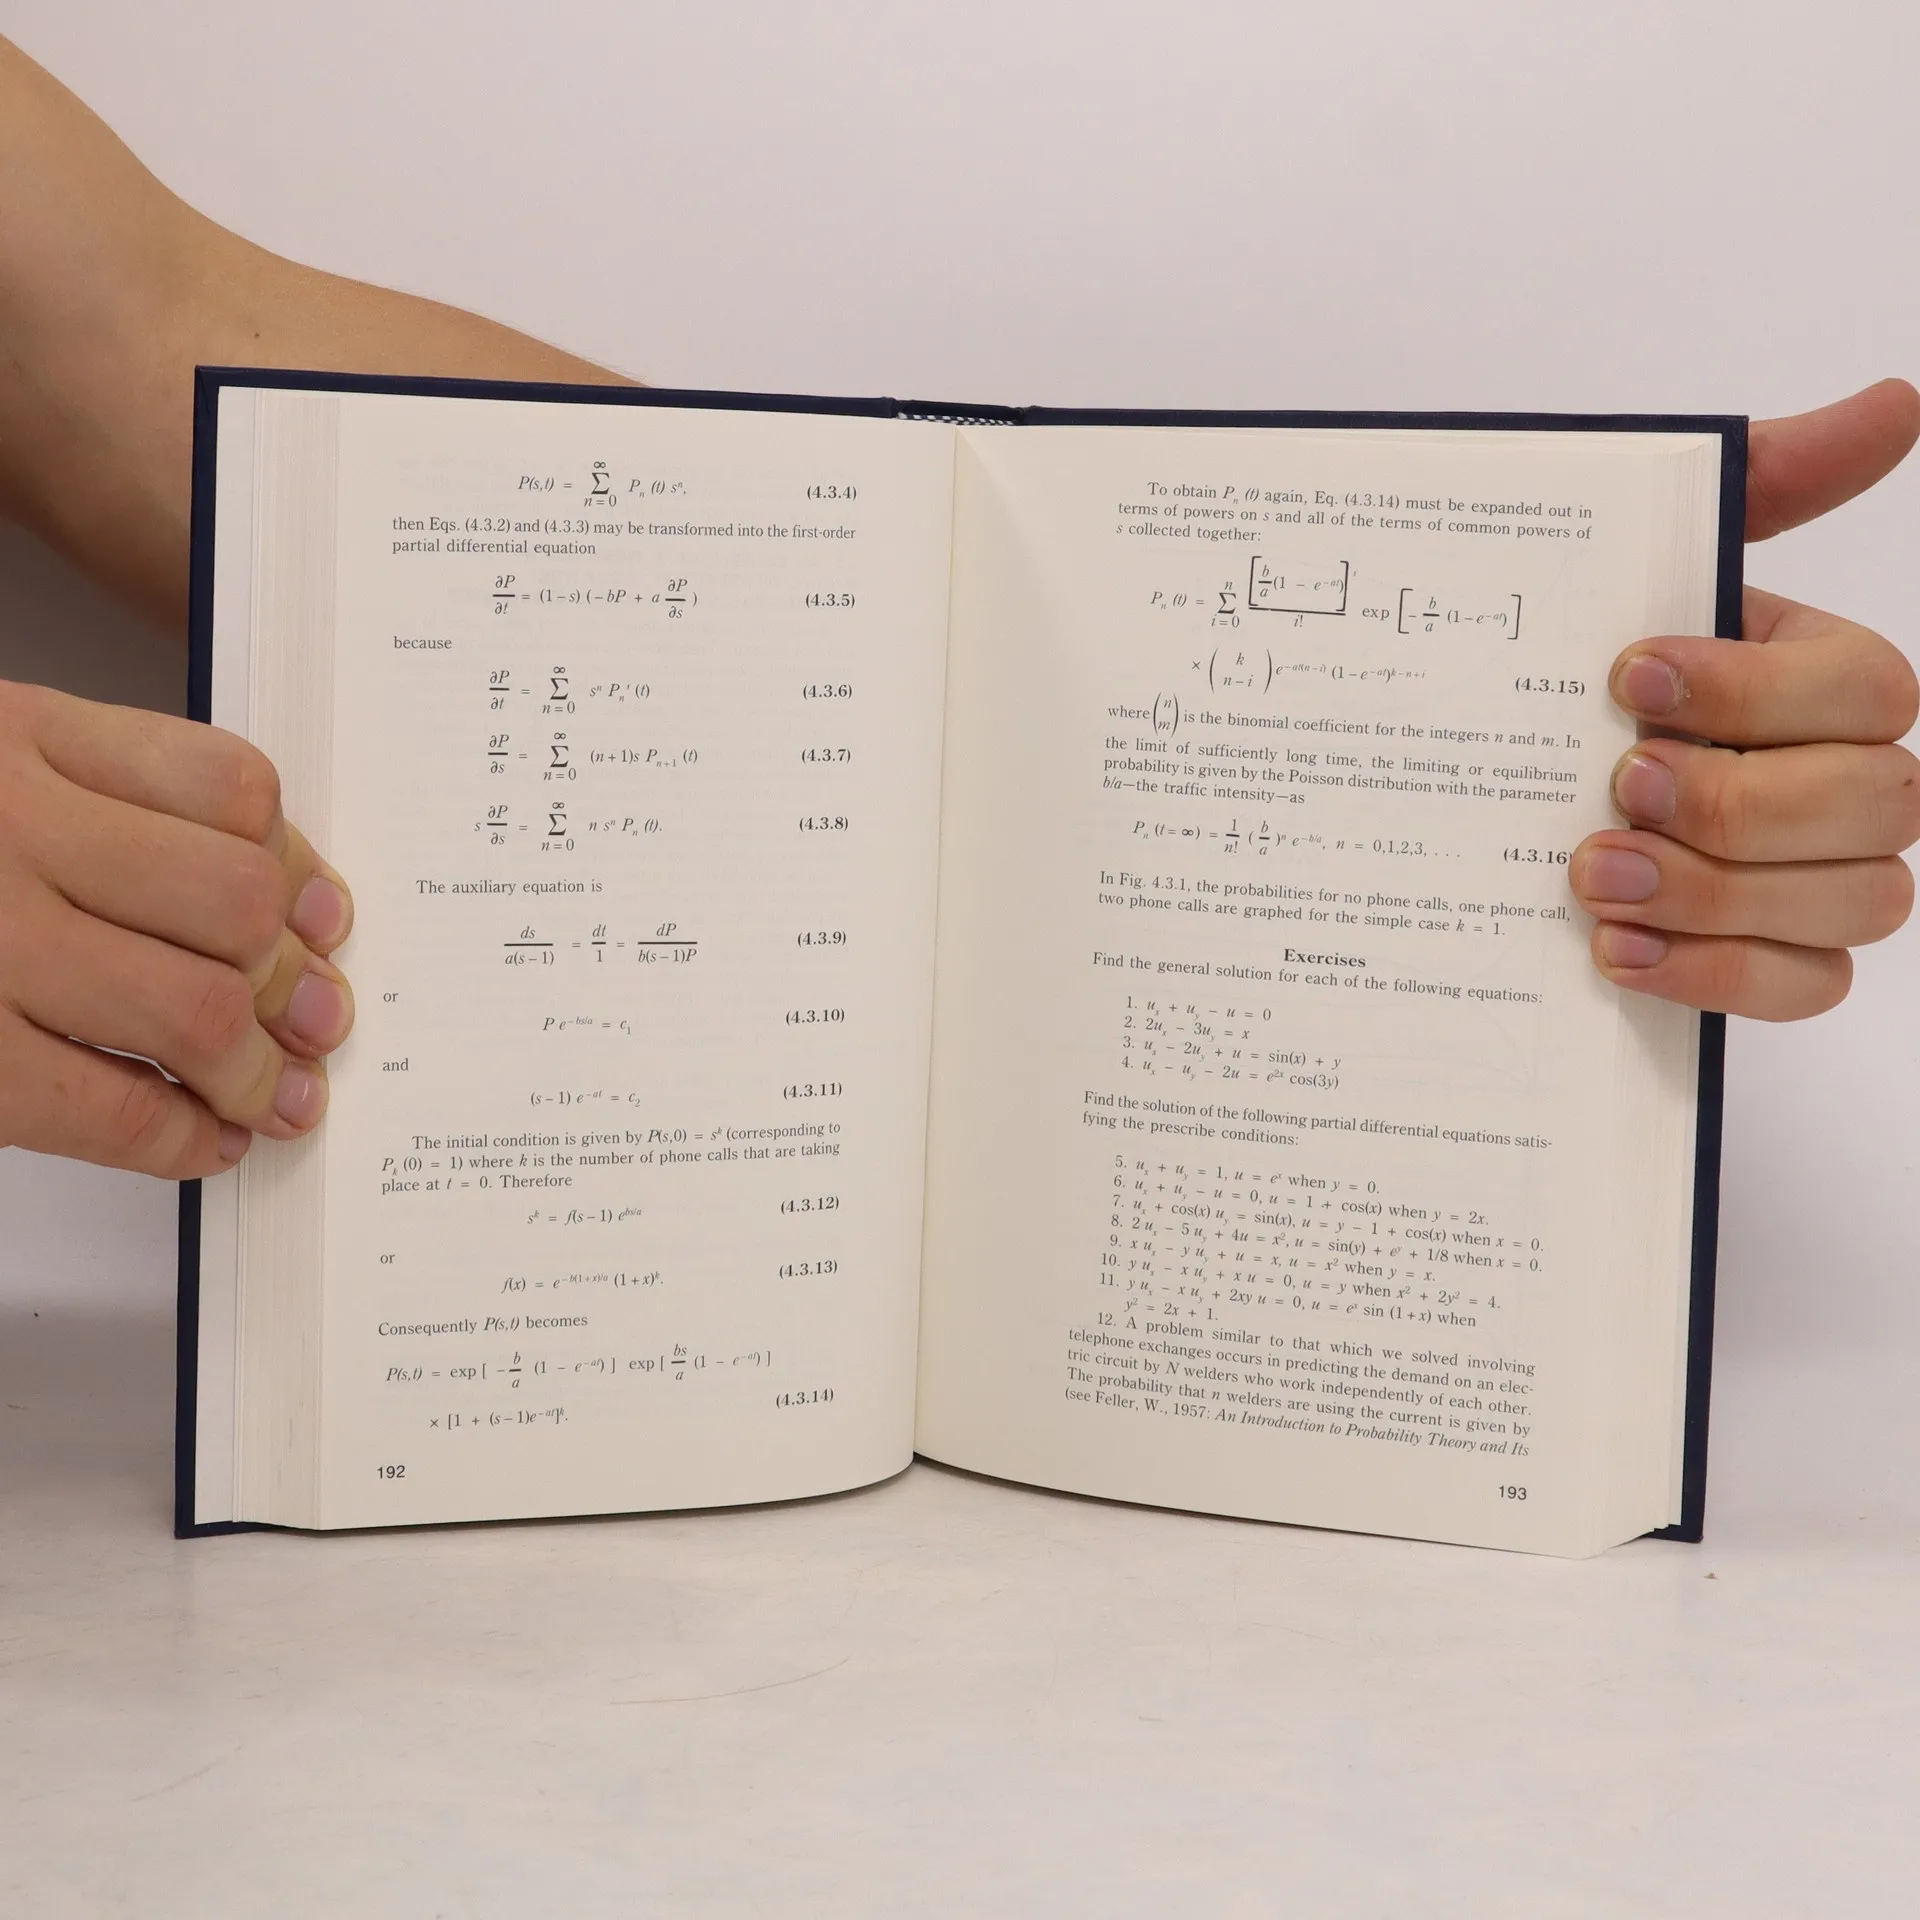 P(s,t) = ∞ Σ n=0 Pₙ (t) sⁿ, (4.3.4)
then Eqs. (4.3.2) and (4.3.3) may be transformed into the first-order
partial differential equation
∂P/∂t = (1−s) (−bP + a ∂P/∂s ) (4.3.5)
because
∂P/∂t = ∞ Σ n=0 sⁿ Pₙ′ (t) (4.3.6)
∂P/∂s = ∞ Σ n=0 (n+1)s Pₙ₊₁ (t) (4.3.7)
s ∂P/∂s = ∞ Σ n=0 n sⁿ Pₙ (t). (4.3.8)
The auxiliary equation is
ds/a(s−1) = dt/1 = dP/b(s−1)P (4.3.9)
or
P e^{−bs/a} = c₁ (4.3.10)
and
(s−1) e^{−at} = c₂ (4.3.11)
The initial condition is given by P(s,0) = sᵏ (corresponding to
Pₖ (0) = 1) where k is the number of phone calls that are taking
place at t = 0. Therefore
sᵏ = f(s−1) e^{bs/a} (4.3.12)
or
f(x) = e^{−b(1+x)/a} (1+x)ᵏ. (4.3.13)
Consequently P(s,t) becomes
P(s,t) = exp [ −b/a (1 − e^{−at}) ] exp [ bs/a (1 − e^{−at}) ]
× [1 + (s−1)e^{−at}]ᵏ. (4.3.14)
192
To obtain Pₙ (t) again, Eq. (4.3.14) must be expanded out in
terms of powers on s and all of the terms of common powers of
s collected together:
Pₙ (t) = n Σ i=0 [b/a(1 − e^{−at})]^{s}/i! exp [−b/a (1−e^{−at})]
× (k n−i) e^{−at(n−i)} (1−e^{−at})^{k−n+i} (4.3.15)
where (n m) is the binomial coefficient for the integers n and m. In
the limit of sufficiently long time, the limiting or equilibrium
probability is given by the Poisson distribution with the parameter
b/a—the traffic intensity—as
Pₙ (t=∞) = 1/n! (b/a)ⁿ e^{−b/a}, n = 0,1,2,3, . . . (4.3.16)
In Fig. 4.3.1, the probabilities for no phone calls, one phone call,
two phone calls are graphed for the simple case k = 1.
Exercises
Find the general solution for each of the following equations:
1. u_x + u_y − u = 0
2. 2u_x − 3u_y = x
3. u_x − 2u_y + u = sin(x) + y
4. u_x − u_y − 2u = e^{2x} cos(3y)
Find the solution of the following partial differential equations satis-
fying the prescribe conditions:
5. u_x + u_y = 1, u = eˣ when y = 0.
6. u_x + u_y − u = 0, u = 1 + cos(x) when y = 2x.
7. u_x + cos(x) u_y = sin(x), u = y − 1 + cos(x) when x = 0.
8. 2 u_x − 5 u_y + 4u = x², u = sin(y) + e^y + 1/8 when x = 0.
9. x u_x − y u_y + u = x, u = x² when y = x.
10. y u_x − x u_y + x u = 0, u = y when x² + 2y² = 4.
11. y u_x − x u_y + 2xy u = 0, u = eˣ sin (1+x) when
y² = 2x + 1.
12. A problem similar to that which we solved involving
telephone exchanges occurs in predicting the demand on an elec-
tric circuit by N welders who work independently of each other.
The probability that n welders are using the current is given by
(see Feller, W., 1957: An Introduction to Probability Theory and Its
193